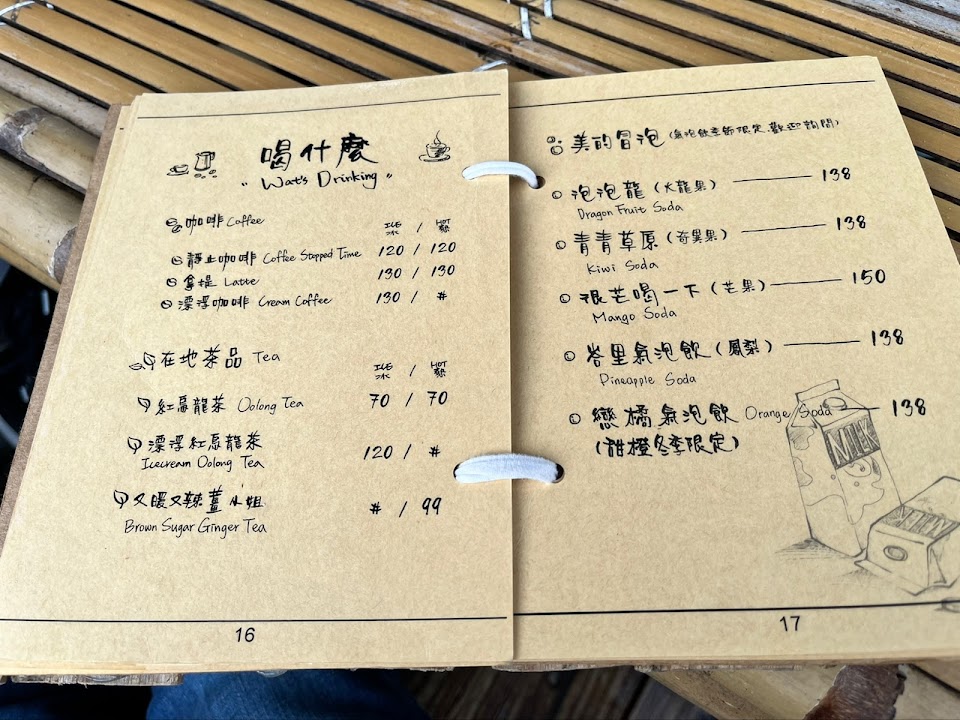 喝什麼
"Wat's Drinking"
咖啡 Coffee ICE 冰 / HOT 熱
靜止咖啡 Coffee Stopped Time 120 / 120
拿提 Latte 130 / 130
漂浮咖啡 Cream Coffee 130 / #
在地茶品 Tea ICE 冰 / HOT 熱
紅烏龍茶 Oolong Tea 70 / 70
漂浮紅烏龍茶
Icecream Oolong Tea 120 / #
又暖又辣薑小姐 # / 99
Brown Sugar Ginger Tea
16
美的冒泡 (氣泡飲季節限定、歡迎詢問)
泡泡龍 (火龍果) 138
Dragon Fruit Soda
青青草原 (奇異果) 138
Kiwi Soda
很芒喝一下 (芒果) 150
Mango Soda
峇里氣泡飲 (鳳梨) 138
Pineapple Soda
戀橘氣泡飲 Orange Soda 138
(甜橙冬季限定)
MILK
17